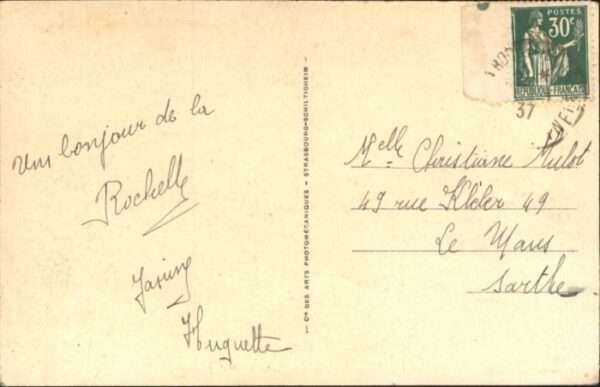 Un bonjour de la
Rochelle
Huguette
— Cie DES ARTS PHOTOMÉCANIQUES - STRASBOURG-SCHILTIGHEIM —
POSTES
30c
RÉPUBLIQUE FRANÇAISE
37
Melle Christiane Mulot
49 rue Kléber 49
Le Mans
Sarthe